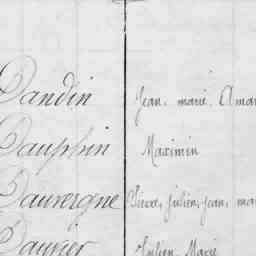 Dandin Jean, marie, Amar
Dauphin Maximin
Dauvergne Pierre, Julien, Jean, mar
Dauvier Julien Marie